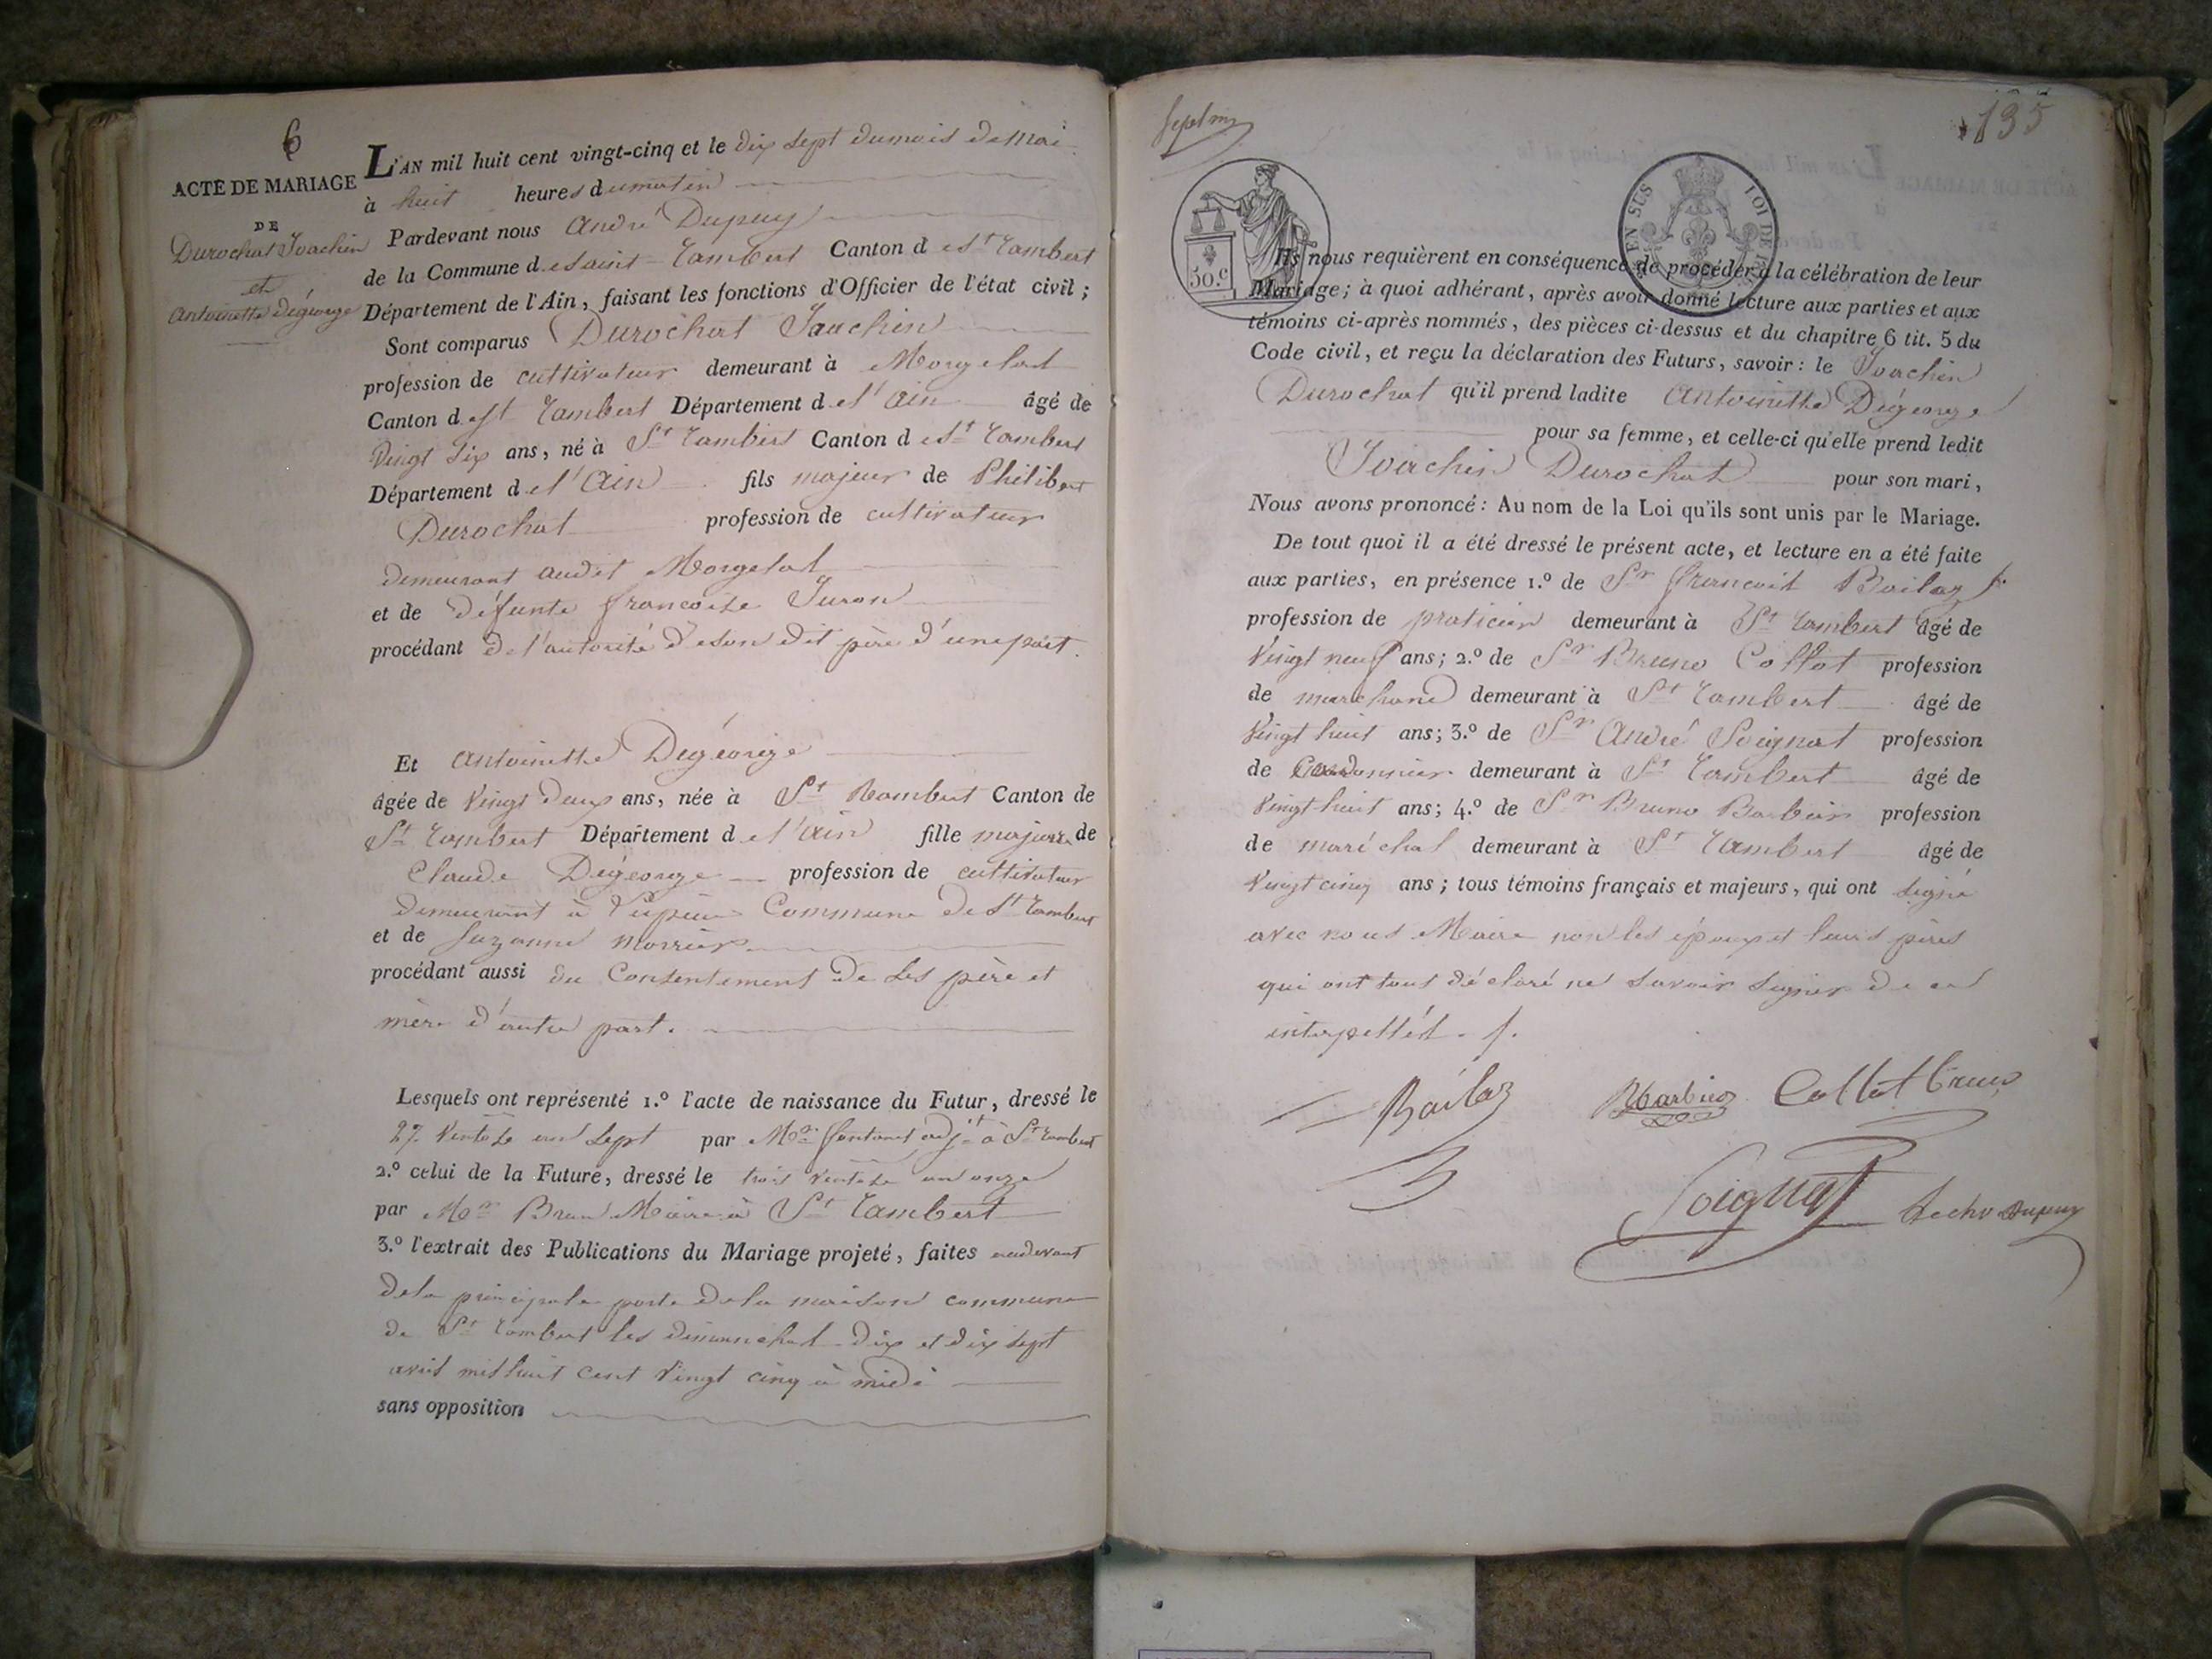 6
ACTE DE MARIAGE
DE
Durochat Joachin
et
Antoinette Dégeorge
L'AN mil huit cent vingt-cinq et le dix sept du mois de Mai
à huit heures du matin
Pardevant nous André Dupuy
de la Commune de Saint-Rambert Canton de St Rambert
Département de l'Ain, faisant les fonctions d'Officier de l'état civil ;
Sont comparus Durochat Joachin
profession de cultivateur demeurant à Morgelas
Canton de St Rambert Département de l'Ain âgé de
Vingt Six ans, né à St Rambert Canton de St Rambert
Département de l'Ain fils majeur de Philibert
Durochat profession de cultivateur
demeurant audit Morgelas
et de défunte françoise Juron
procédant de l'autorité de son dit père d'une part.
Et Antoinette Dégeorge
âgée de Vingt deux ans, née à St Rambert Canton de
St Rambert Département de l'Ain fille majeure de
Claude Dégeorge profession de cultivateur
demeurant à Commune de St Rambert
et de Suzanne
procédant aussi du Consentement de ses père et
mère d'autre part.
Lesquels ont représenté 1.º l'acte de naissance du Futur, dressé le
27 Ventose an Sept par Mr adjt à St Rambert
2.º celui de la Future, dressé le trois Ventose an onze
par Mr Brun Maire à St Rambert
3.º l'extrait des Publications du Mariage projeté, faites audevant
de la principale porte de la maison commune
de St Rambert les dimanches dix et dix sept
avril mil huit cent Vingt cinq à midi
sans opposition
135
50.c
EN SUS
LOI DE
Ils nous requièrent en conséquence de procéder à la célébration de leur
Mariage ; à quoi adhérant, après avoir donné lecture aux parties et aux
témoins ci-après nommés, des pièces ci-dessus et du chapitre 6 tit. 5 du
Code civil, et reçu la déclaration des Futurs, savoir : le Joachin
Durochat qu'il prend ladite Antoinette Dégeorge
pour sa femme, et celle-ci qu'elle prend ledit
Joachin Durochat pour son mari,
Nous avons prononcé : Au nom de la Loi qu'ils sont unis par le Mariage.
De tout quoi il a été dressé le présent acte, et lecture en a été faite
aux parties, en présence 1.º de Sr françois Bailaz
profession de praticien demeurant à St Rambert âgé de
Vingt neuf ans ; 2.º de Sr Bruno Collot profession
de marchand demeurant à St Rambert âgé de
Vingt huit ans ; 3.º de Sr André Soignat profession
de Cordonnier demeurant à St Rambert âgé de
Vingt huit ans ; 4.º de Sr Bruno Barbier profession
de maréchal demeurant à St Rambert âgé de
Vingt cinq ans ; tous témoins français et majeurs, qui ont Signé
avec nous Maire non les époux et leurs pères
qui ont tous déclaré ne Savoir Signer de ce
interpellés.
Bailaz
Barbier
Collot Bruno
Soignat
Dupuy